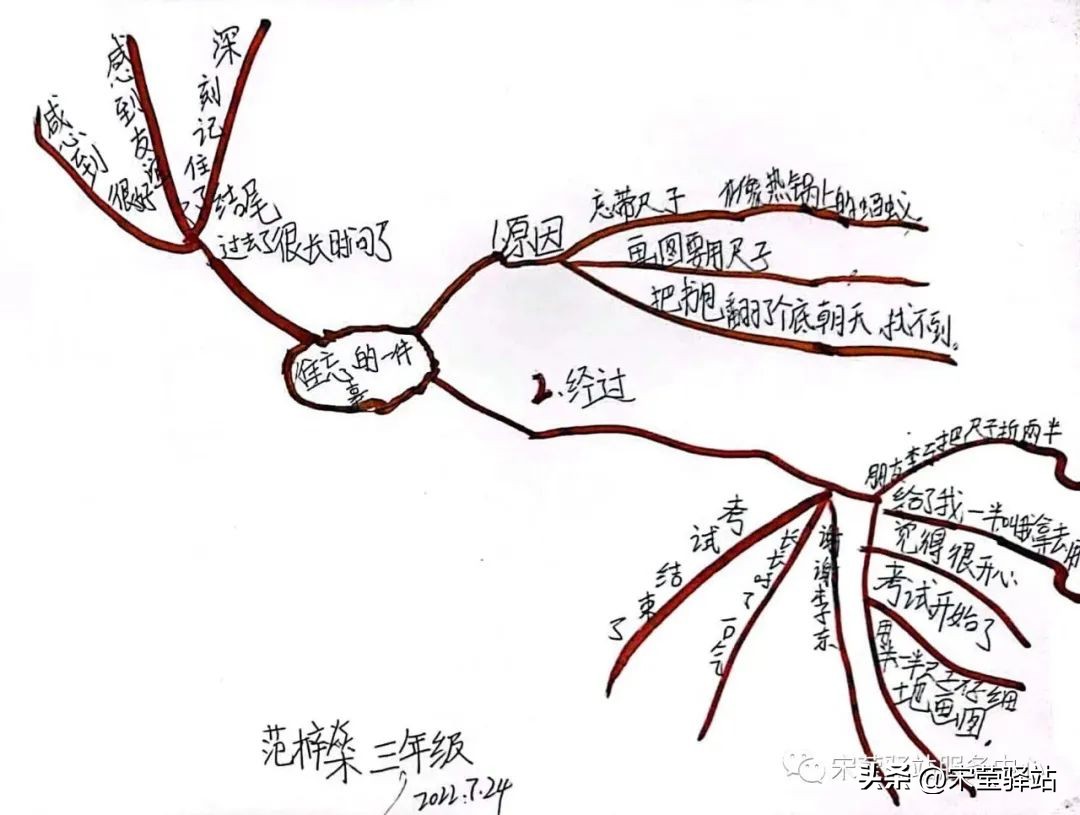 难忘的一件
事
1.原因
忘带尺子
像热锅上的蚂蚁
画图要用尺子
把书包翻了个底朝天,找不到。
2.经过
朋友李东把尺子折两半
给了我一半叫我拿去用
觉得很开心
考试开始了
用半尺子仔细
地画图.
谢谢李东
长长吁了一口气
考试结束了
结尾
过去了很长时间了
深刻记住了
感到友谊
感到很好
范梓燊 三年级
2022.7.24
宋莹驿站服务中心
头条 @宋莹驿站